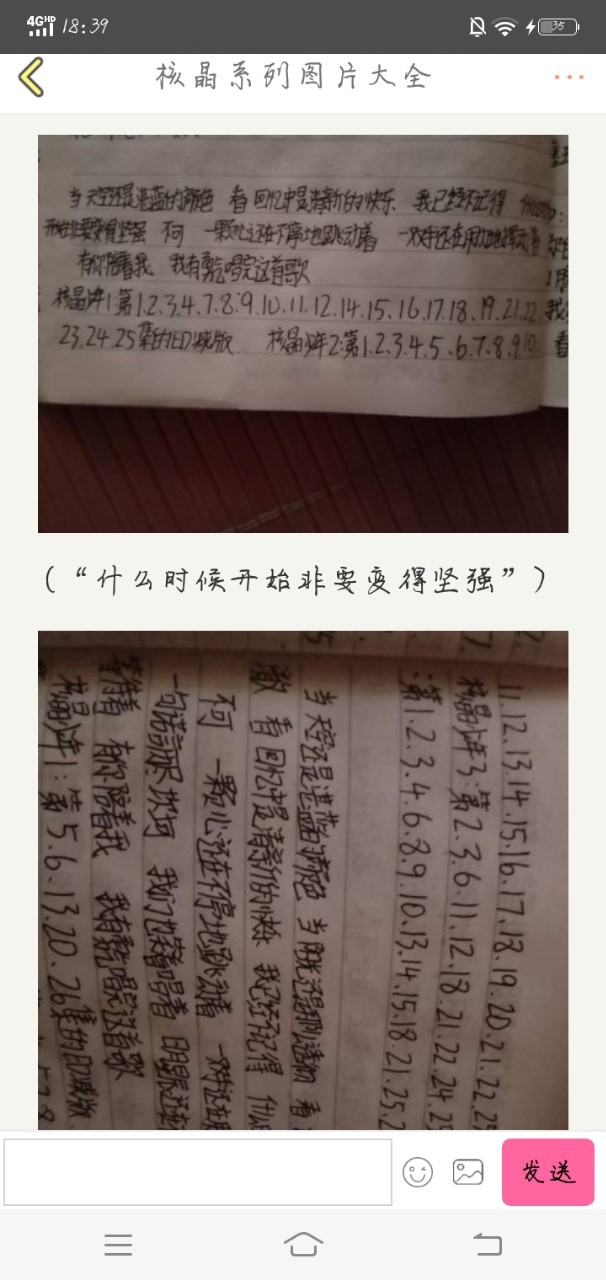 4GHD 18:39 35
核晶系列图片大全
当天空还是湛蓝的颜色 看回忆中是清新的快乐 我已经不记得 什么时候
开始非要变得坚强 不问 一颗心还在不停地跳动着 一双手还在用力地挥动着
有你陪着我 我有勇气唱完这首歌
核晶少年1:第1.2.3.4.7.8.9.10.11.12.14.15.16.17.18.19.21.22.
23.24.25集的ED减版 核晶少年2:第1.2.3.4.5.6.7.8.9.10
(“什么时候开始非要变得坚强”)
11.12.13.14.15.16.17.18.19.20.21.22.2
核晶少年3:第2.3.6.11.12.18.21.22.24.2
:第1.2.3.4.6.8.9.10.13.14.15.18.21.25.2
当天空还是湛蓝的颜色 当阳光还是那么透彻 看
澈 看回忆中是清新的快乐 我已经不记得 什么
不问 一颗心还在不停地跳动着 一双手还在
一句诺言尽坎坷 我们也笑着唱着 明星还在
管得着 有你陪着我 我有勇气唱完这首歌
核晶少年1:第5.6.13.20.26集的ED减版
发送